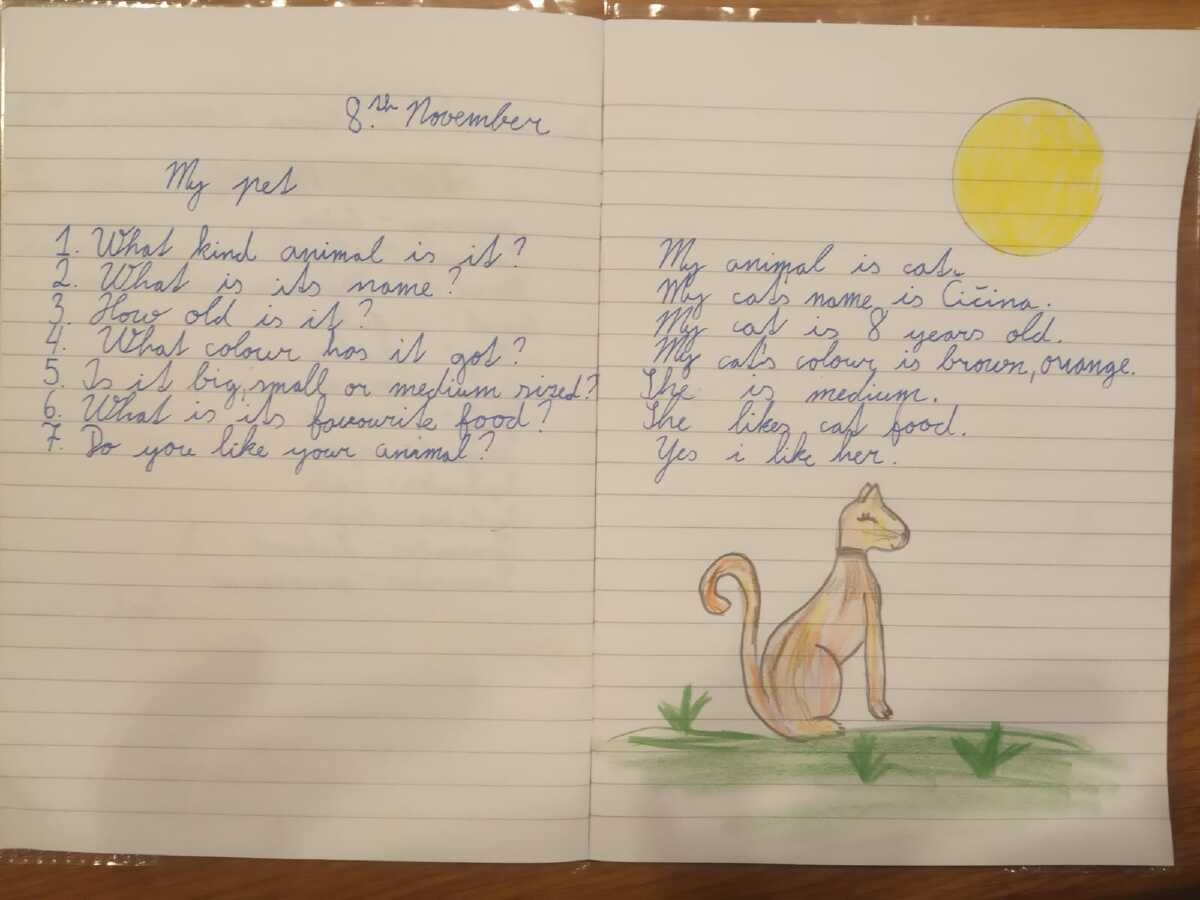 8.th November
My pet
1. What kind animal is it?
2. What is its name?
3. How old is it?
4. What colour has it got?
5. Is it big, small or medium sized?
6. What is its favourite food?
7. Do you like your animal?
My animal is cat.
My cats name is Cičina.
My cat is 8 years old.
My cats colour is brown, orange.
She is medium.
She likes cat food.
Yes i like her.